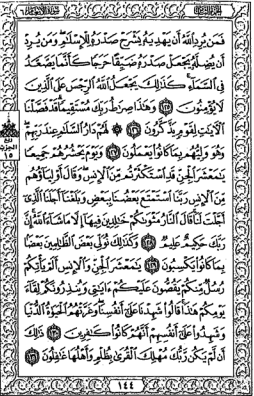 فَمَن يُرِدِ اللَّهُ أَن يَهْدِيَهُ يَشْرَحْ صَدْرَهُ لِلْإِسْلَامِ وَمَن يُرِدْ
أَن يُضِلَّهُ يَجْعَلْ صَدْرَهُ ضَيِّقًا حَرَجًا كَأَنَّمَا يَصَّعَّدُ
فِي السَّمَاءِ كَذَلِكَ يَجْعَلُ اللَّهُ الرِّجْسَ عَلَى الَّذِينَ
لَا يُؤْمِنُونَ ١٢٥ وَهَذَا صِرَاطُ رَبِّكَ مُسْتَقِيمًا قَدْ فَصَّلْنَا
الْآيَاتِ لِقَوْمٍ يَذَّكَّرُونَ ١٢٦ لَهُمْ دَارُ السَّلَامِ عِندَ رَبِّهِمْ
وَهُوَ وَلِيُّهُم بِمَا كَانُوا يَعْمَلُونَ ١٢٧ وَيَوْمَ يَحْشُرُهُمْ جَمِيعًا
يَامَعْشَرَ الْجِنِّ قَدِ اسْتَكْثَرْتُم مِّنَ الْإِنسِ وَقَالَ أَوْلِيَاؤُهُم
مِّنَ الْإِنسِ رَبَّنَا اسْتَمْتَعَ بَعْضُنَا بِبَعْضٍ وَبَلَغْنَا أَجَلَنَا الَّذِي
أَجَّلْتَ لَنَا قَالَ النَّارُ مَثْوَاكُمْ خَالِدِينَ فِيهَا إِلَّا مَا شَاءَ اللَّهُ إِنَّ
رَبَّكَ حَكِيمٌ عَلِيمٌ ١٢٨ وَكَذَلِكَ نُوَلِّي بَعْضَ الظَّالِمِينَ بَعْضًا
بِمَا كَانُوا يَكْسِبُونَ ١٢٩ يَامَعْشَرَ الْجِنِّ وَالْإِنسِ أَلَمْ يَأْتِكُمْ
رُسُلٌ مِّنكُمْ يَقُصُّونَ عَلَيْكُمْ آيَاتِي وَيُنذِرُونَكُمْ لِقَاءَ
يَوْمِكُمْ هَذَا قَالُوا شَهِدْنَا عَلَى أَنفُسِنَا وَغَرَّتْهُمُ الْحَيَاةُ الدُّنْيَا
وَشَهِدُوا عَلَى أَنفُسِهِمْ أَنَّهُمْ كَانُوا كَافِرِينَ ١٣٠ ذَلِكَ
أَن لَّمْ يَكُن رَّبُّكَ مُهْلِكَ الْقُرَى بِظُلْمٍ وَأَهْلُهَا غَافِلُونَ ١٣١
١٤٤